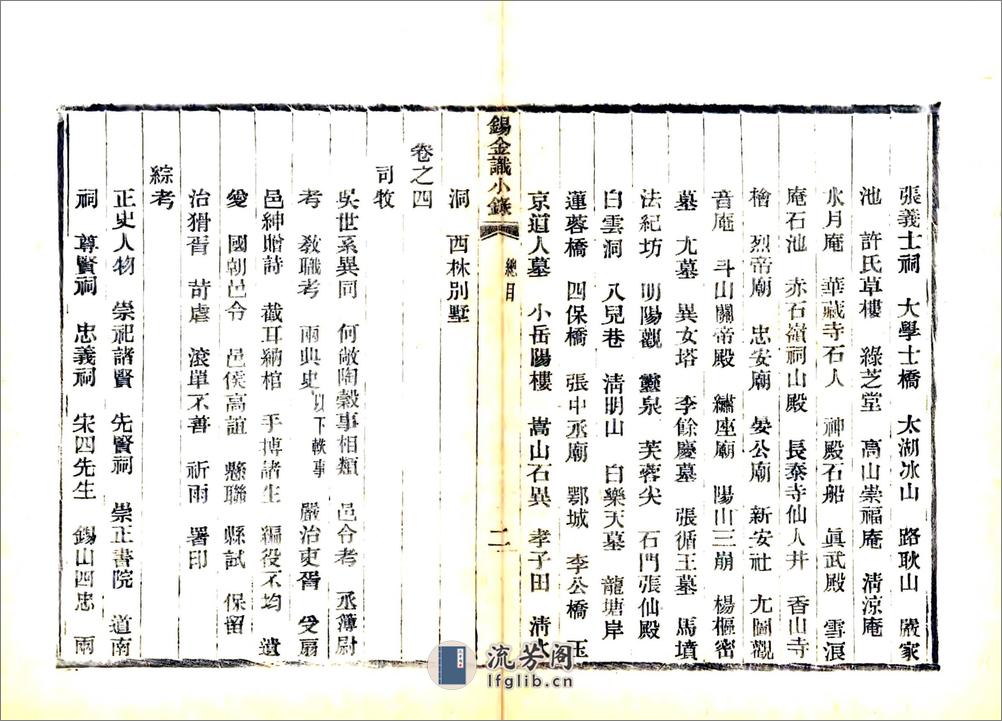 張義士祠　大學士橋　太湖冰山　路耿山　嚴家
池　許氏草樓　綠芝堂　高山崇福庵　清涼庵
水月庵　華藏寺石人　神殿石船　眞武殿　雪浪
庵石池　赤石嶺祠山殿　長泰寺仙人井　香山寺
檜　烈帝廟　忠安廟　晏公廟　新安社　九圖觀
音庵　斗山關帝殿　繡座廟　陽山三崩　楊樞密
墓　尤墓　異女塔　李餘慶墓　張循王墓　馬墳
法紀坊　明陽觀　靈泉　芙蓉尖　石門張仙殿
白雲洞　八兒巷　清明山　白樂天墓　龍塘岸
蓮蓉橋　四保橋　張中丞廟　鄂城　李公橋　玉
京道人墓　小岳陽樓　嵩山石異　孝子田　清
錫金識小錄　總目　二
洞　西林別墅
卷之四
司牧
吳世系異同　何敞陶穀事相類　邑令考　丞簿尉
考　教職考　兩典史以下軼事　嚴治吏胥　受扇
邑紳贈詩　截耳納棺　手搏諸生　編役不均　遺
愛　國朝邑令　邑侯高誼　懸聯　縣試　保留
治猾胥　苛虐　滾單不善　祈雨　署印
綜考
正史人物　崇祀諸賢　先賢祠　崇正書院　道南
祠　尊賢祠　忠義祠　宋四先生　錫山四忠　兩
流芳阁
lfglib.cn